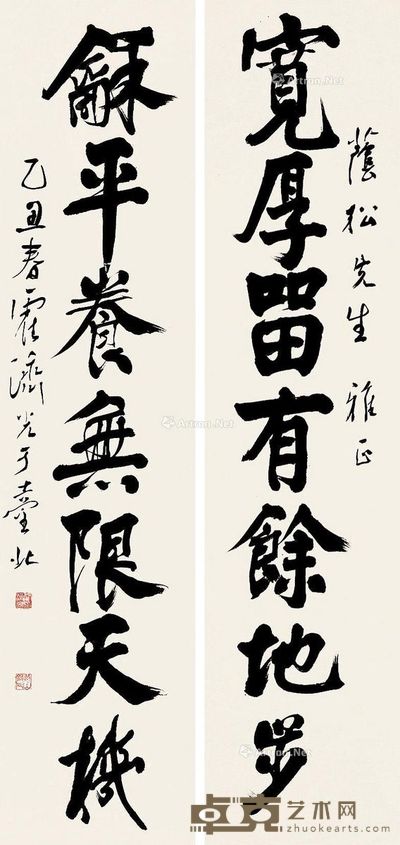 蔭松先生 雅正
寬厚留有餘地步
龢平養無限天機
乙丑春霍濟光于臺北
Artron.Net
卓克艺术网
zhuokearts.com